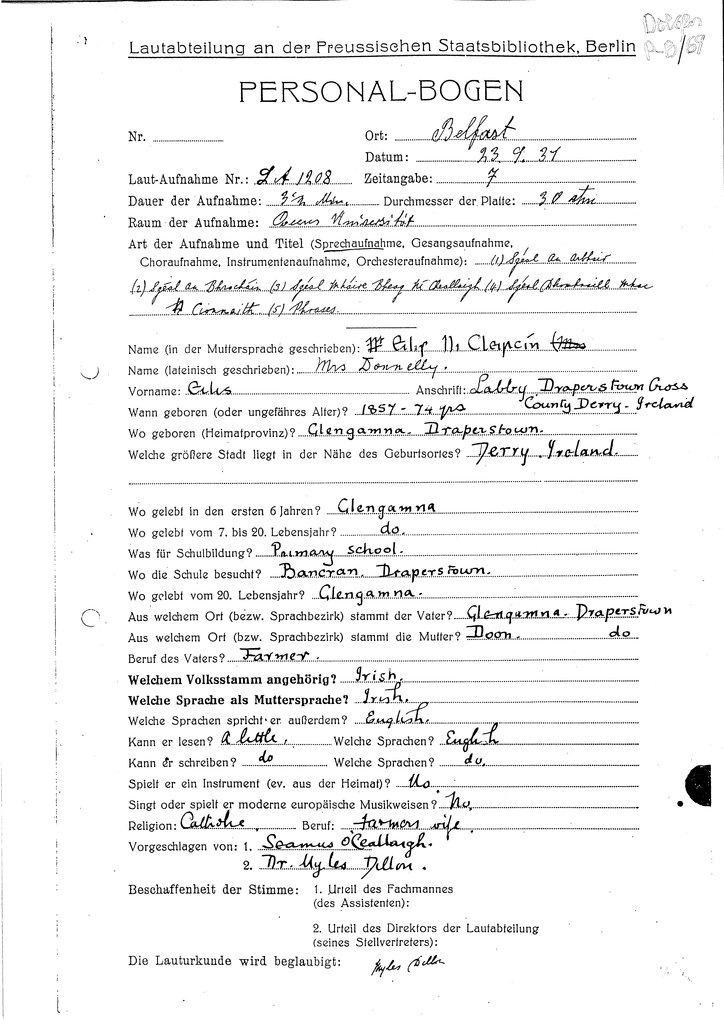 Lautabteilung an der Preussischen Staatsbibliothek, Berlin
PERSONAL-BOGEN
Nr.
Ort: Belfast
Datum: 23. 9. 31
Laut-Aufnahme Nr.: LA 1208 Zeitangabe: 7
Dauer der Aufnahme: 3½ Min. Durchmesser der Platte: 30
Raum der Aufnahme: Queens Universität
Art der Aufnahme und Titel (Sprechaufnahme, Gesangsaufnahme,
Choraufnahme, Instrumentenaufnahme, Orchesteraufnahme): (1) Sgéal an
(2) Sgéal an (3) Sgéal Mháire Bheag (4) Sgéal
(5) Phrases.
Name (in der Muttersprache geschrieben): Eilís Ní
Name (lateinisch geschrieben): Mrs Donnelly.
Vorname: Eilis Anschrift: Labby Draperstown Cross
County Derry - Ireland
Wann geboren (oder ungefähres Alter)? 1857 - 74 yrs
Wo geboren (Heimatprovinz)? Glengamna. Draperstown.
Welche größere Stadt liegt in der Nähe des Geburtsortes? Derry. Ireland.
Wo gelebt in den ersten 6 Jahren? Glengamna
Wo gelebt vom 7. bis 20. Lebensjahr? do.
Was für Schulbildung? Primary school.
Wo die Schule besucht? Bancran. Draperstown.
Wo gelebt vom 20. Lebensjahr? Glengamna.
Aus welchem Ort (bezw. Sprachbezirk) stammt der Vater? Glengamna. Draperstown
Aus welchem Ort (bzw. Sprachbezirk) stammt die Mutter? Doon. do
Beruf des Vaters? Farmer.
Welchem Volksstamm angehörig? Irish.
Welche Sprache als Muttersprache? Irish.
Welche Sprachen spricht er außerdem? English.
Kann er lesen? A little. Welche Sprachen? English
Kann er schreiben? do Welche Sprachen? do.
Spielt er ein Instrument (ev. aus der Heimat)? No.
Singt oder spielt er moderne europäische Musikweisen? No.
Religion: Catholic Beruf: farmers wife
Vorgeschlagen von: 1. Seamus O'Ceallaigh.
2. Dr. Myles Dillon.
Beschaffenheit der Stimme: 1. Urteil des Fachmannes
(des Assistenten):
2. Urteil des Direktors der Lautabteilung
(seines Stellvertreters):
Die Lauturkunde wird beglaubigt: Myles Dillon